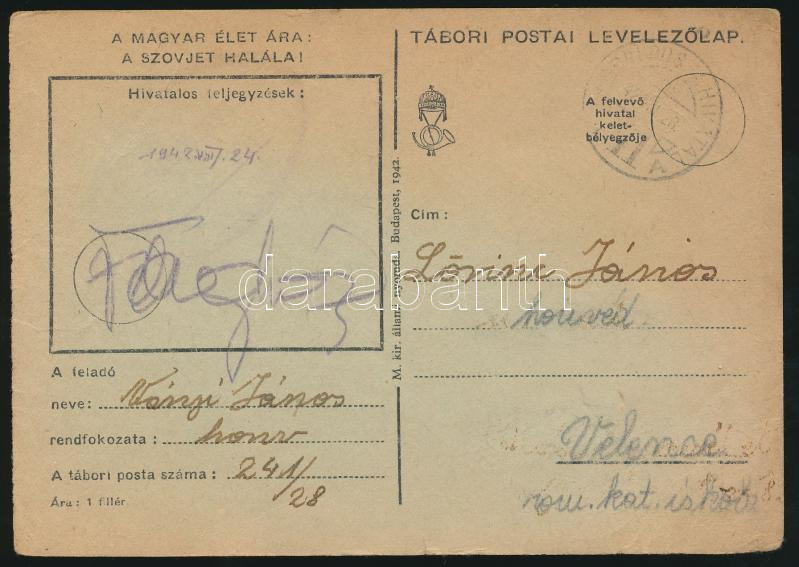 A MAGYAR ÉLET ÁRA:
A SZOVJET HALÁLA!
Hivatalos feljegyzések:
1942 VIII/24.
A feladó
neve: Ványi János
rendfokozata: honv
A tábori posta száma: 241/28
Ára: 1 fillér.
M. kir. állami nyomda, Budapest, 1942.
TÁBORI POSTAI LEVELEZŐLAP.
A felvevő
hivatal
kelet-
bélyegzője
Cím:
Lőrinc János
honvéd
Velence
rom. kat. iskola
darabanth